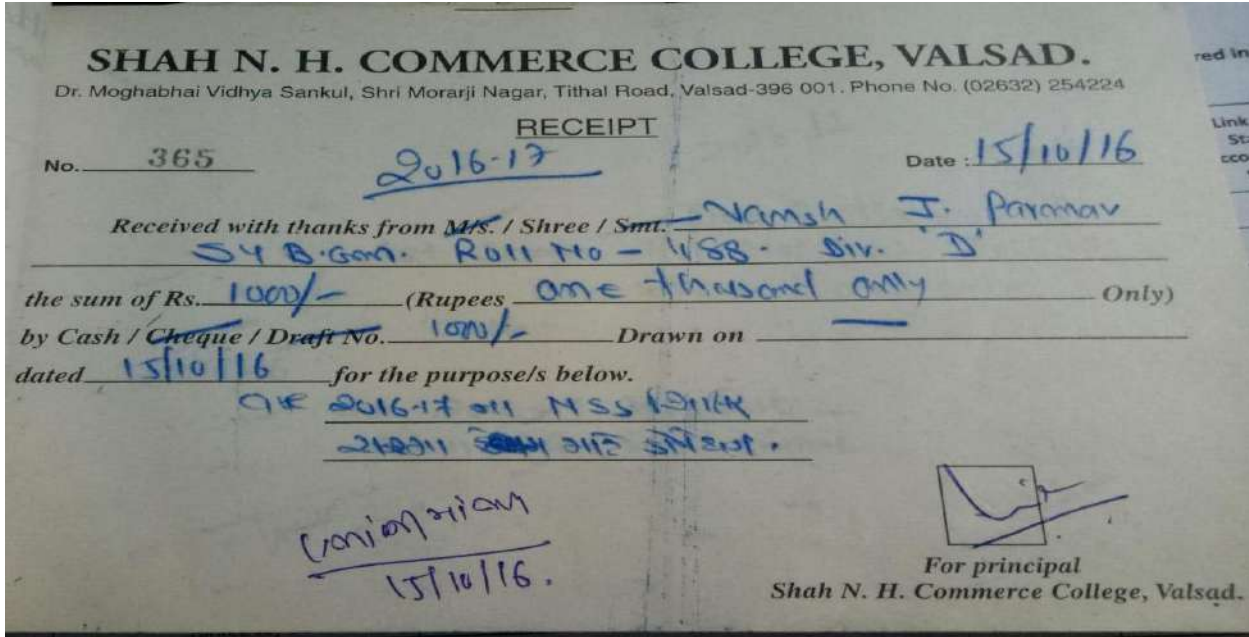 SHAH N. H. COMMERCE COLLEGE, VALSAD.
Dr. Moghabhai Vidhya Sankul, Shri Morarji Nagar, Tithal Road, Valsad-396 001. Phone No. (02632) 254224
RECEIPT
No. 365 2016-17 Date : 15/10/16
Received with thanks from M/s. / Shree / Smt. Vamsh J. Parmar
SY B.Com. Roll No - 488 - Div. 'D'
the sum of Rs. 1000/- (Rupees one thusand only Only)
by Cash / Cheque / Draft No. 1000/- Drawn on —
dated 15/10/16 for the purpose/s below.
2016-17 ના NSS
માટે
15/10/16.
For principal
Shah N. H. Commerce College, Valsad.
red in
Link
St
cco